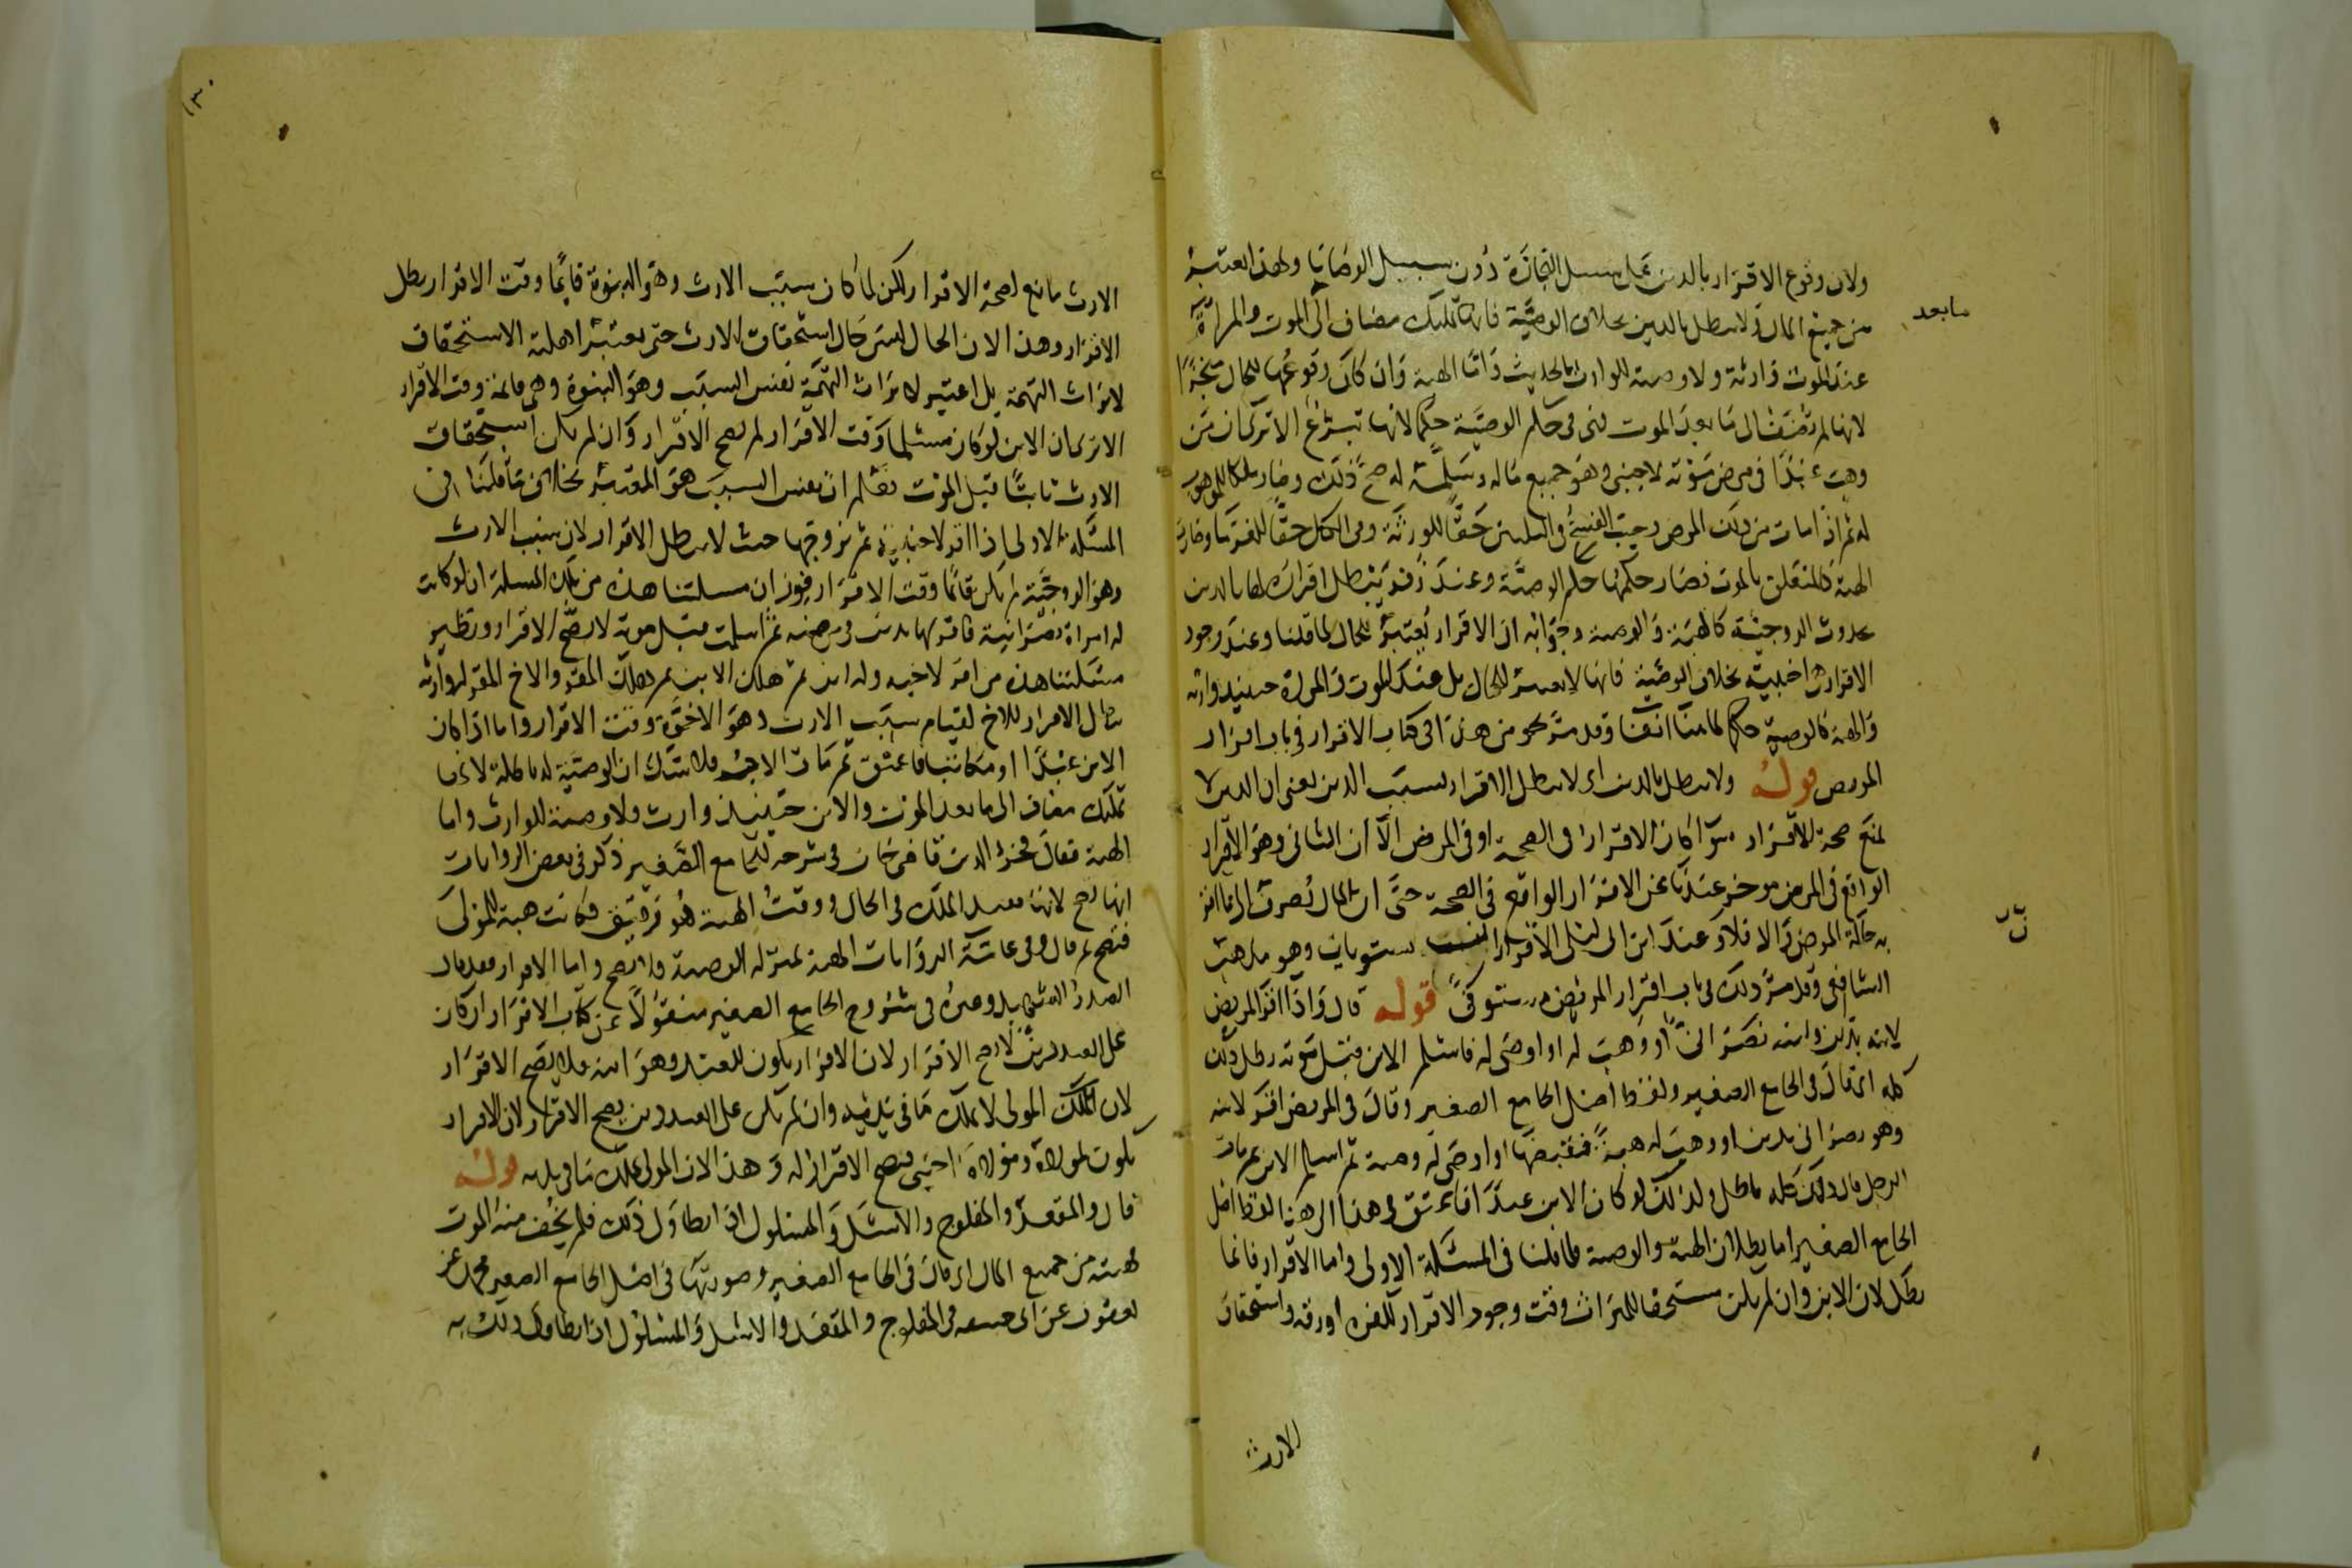 ولان وقوع الاقرار بالدين على سبيل التجارة دون سبيل الوصايا ولهذا اعتبر
مابعد
من جميع المال ولا يبطل بالدين بخلاف الوصية فانها تمليك مضاف الى الموت والمراة
عند الموت وارثة ولا وصية للوارث بالحديث واما الهبة وان كان وقوعها للحال منجزا
لانها لم تضف الى ما بعد الموت فهي في حكم الوصية حكما لانها تبرع الا ترى ان من
وهب عبدا في مرض موته لاجنبي وهو جميع ماله وسلمه له صح ذلك وصار ملكا للموهوب
له ثم اذا مات من ذلك المرض وجب الفسخ في الثلثين حقا للورثة وفي الكل حقا للغرما وصارت
الهبة كالمتعلق بالموت فصار حكمها حكم الوصية وعند زفر يبطل اقراره لها بالدين
بحدوث الزوجية كالهبة والوصية وجوابه ان الاقرار يعتبر للحال لما قلنا وعند وجود
الاقرار هي اجنبية بخلاف الوصية فانها لا تعتبر للحال بل عند الموت والمراة حينيذ وارثه
والهبة كالوصية حكما لما بينا انفا وقد مر نحو من هذا في كتاب الاقرار في باب اقرار
المريض قوله ولا يبطل بالدين اى لا يبطل الاقرار بسبب الدين يعنى ان الدين لا
يمنع صحة الاقرار سوا كان الاقرار في الصحة او في المرض الا ان الثانى وهو الاقرار
الواقع في المرض موخر عندنا عن الاقرار الواقع في الصحة حتى ان المال يصرف الى ما اقر
به حالة المرض والا فلا وعند ابن ابى ليلى الاقراران يستويان وهو مذهب
الشافعى وقد مر ذلك في باب اقرار المريض مستوفى قوله قال واذا اقر المريض
لابنه بدين وابنه نصرانى او وهب له او اوصى له فاسلم الابن قبل موته بطل ذلك
كله اى قال في الجامع الصغير ولفظ اصل الجامع الصغير وقال في المريض اقر لابنه
وهو نصرانى بدين او وهب له هبة فقبضها او اوصى له وصية ثم اسلم الابن ثم مات
الرجل قال ذلك كله باطل وكذلك لو كان الابن عبدا فاعتق الى هنا لفظ اصل
الجامع الصغير اما بطلان الهبة والوصية فلما قلنا في المسئلة الاولى واما الاقرار فانما
بطل لان الابن وان لم يكن مستحقا للميراث وقت وجود الاقرار لكفره او رقه واستحقاق
الارث
الارث مانع لصحة الاقرار لكن لما كان سبب الارث وهو البنوة قايما وقت الاقرار بطل
الاقرار وهذا لان الحال ليس حال استحقاق الارث حتى يعتبر اهلية الاستحقاق
لايراث التهمة بل اعتبر لايراث التهمة نفس السبب وهو البنوة وهى قائمة وقت الاقرار
الا ترى ان الابن لو كان مسلما وقت الاقرار لم يصح الاقرار وان لم يكن استحقاق
الارث ثابتا قبل الموت فعلم ان نفس السبب هو المعتبر بخلاف ما قلنا في
المسئلة الاولى اذا اقر لاجنبية ثم تزوجها حيث لا يبطل الاقرار لان سبب الارث
وهو الزوجية لم يكن قائما وقت الاقرار فوزان مسئلتنا هذه من تلك المسئلة ان لو كانت
له امراة نصرانية فاقر لها بدين في مرضه ثم اسلمت قبل موته لا يصح الاقرار ونظير
مسئلتنا هذه من اقر لاخيه وله ابن ثم هلك الابن ثم هلك المقر والاخ المقر له وارثه
بطل الاقرار للاخ لقيام سبب الارث وهو الاخوة وقت الاقرار واما اذا كان
الابن عبدا او مكاتبا فاعتق ثم مات الاب فلا شك ان الوصية له باطلة لانها
تمليك مضاف الى ما بعد الموت والابن حينيذ وارث ولا وصية للوارث واما
الهبة فقال فخر الدين قاضى خان في شرحه للجامع الصغير ذكر في بعض الروايات
انها تصح لانه يفيد الملك في الحال ووقت الهبة هو رقيق فكانت هبة للمولى
فتصح ثم قال وفى عامة الروايات الهبة بمنزلة الوصية فلا تصح واما الاقرار فقد قال
الصدر الشهيد وغيره في شروح الجامع الصغير منقولا عن كتاب الاقرار ان كان
على العبد دين لا يصح الاقرار لان الاقرار يكون للعبد وهو ابنه فلا يصح الاقرار
لان المولى لا يملك ما في يده وان لم يكن على العبد دين يصح الاقرار لان الاقرار
يكون لمولاه ومولاه اجنبى فيصح الاقرار له وهذا لان المولى يملك ما في يده قوله
قال والمقعد والمفلوج والاشل والمسلول اذا تطاول ذلك فلم يخف منه الموت
فهبته من جميع المال اى قال في الجامع الصغير وصورتها في اصل الجامع الصغير محمد عن
يعقوب عن ابى حنيفة في المفلوج والمقعد والاشل والمسلول اذا تطاول ذلك به